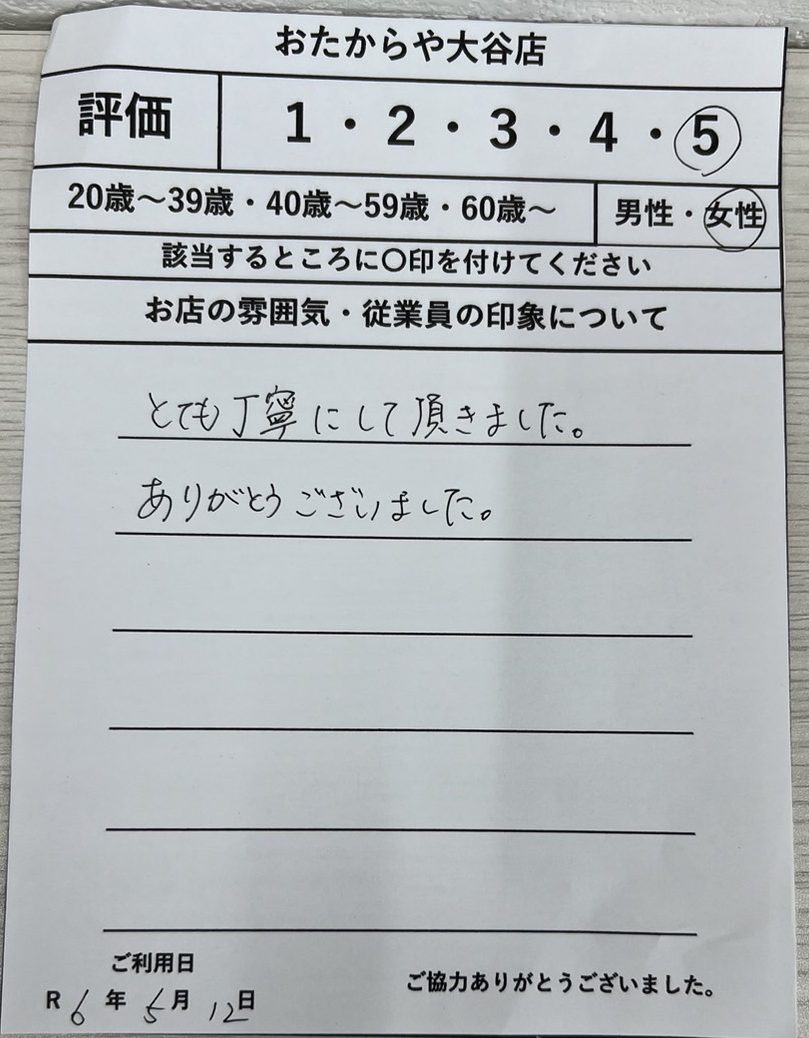 おたからや大谷店
評価 1・2・3・4・5
20歳～39歳・40歳～59歳・60歳～ 男性・女性
該当するところに〇印を付けてください
お店の雰囲気・従業員の印象について
とても丁寧にして頂きました。
ありがとうございました。
ご利用日
R6年5月12日
ご協力ありがとうございました。